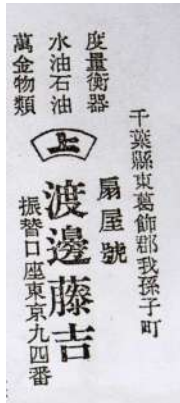 千葉縣東葛飾郡我孫子町
度量衡器
水油石油
萬金物類
上
扇屋號
渡邊藤吉
振替口座東京九四番